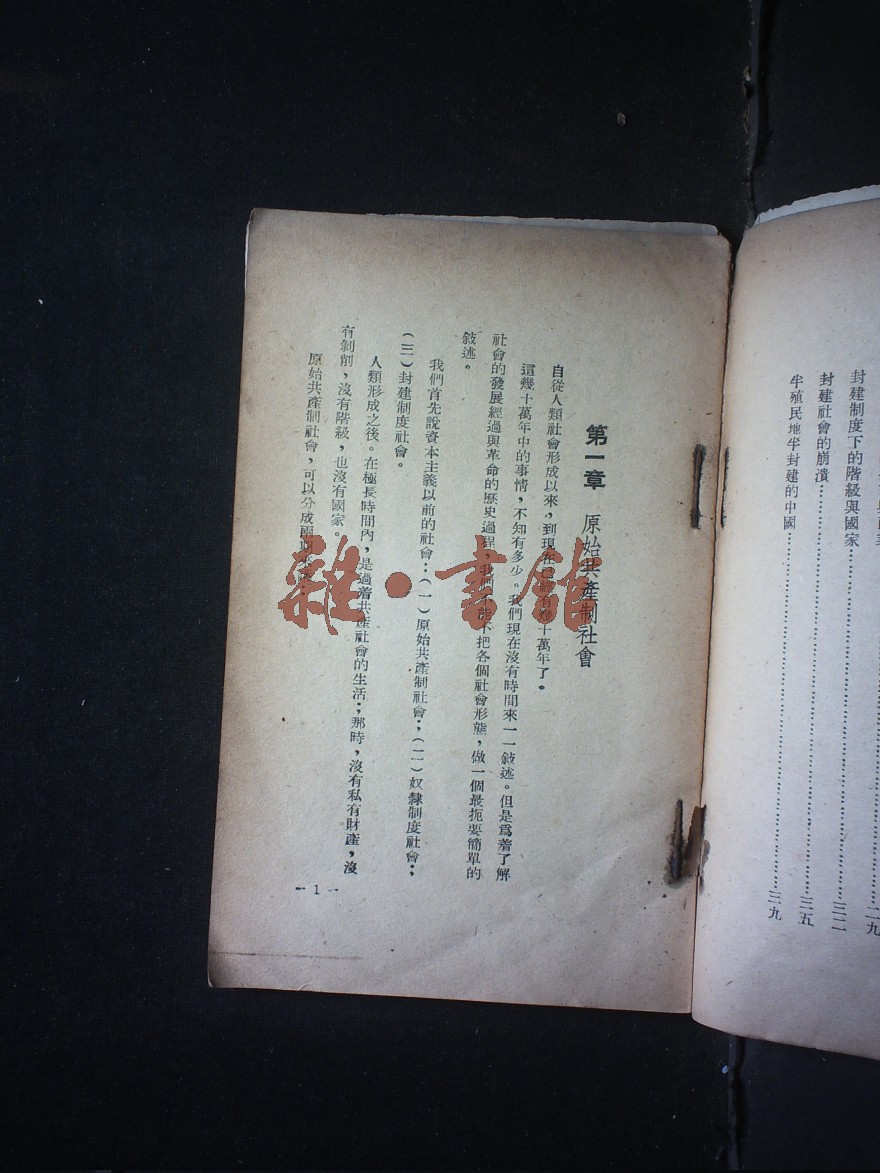 □與商業……………………二九
封建制度下的階級與國家……………………三二
封建社會的崩潰……………………三五
半殖民地半封建的中國……………………三九
第一章 原始共產制社會
自從人類社會形成以來,到現在已經有幾十萬年了。
這幾十萬年中的事情,不知有多少。我們現在沒有時間來一一敍述。但是爲着了解
社會的發展經過與革命的歷史過程,我們不能不把各個社會形態,做一個最扼要簡單的
敍述。
我們首先說資本主義以前的社會:(一)原始共產制社會;(二)奴隸制度社會;
(三)封建制度社會。
人類形成之後。在極長時間內,是過着共產社會的生活;那時,沒有私有財產,沒
有剝削,沒有階級,也沒有國家。
原始共產制社會,可以分成兩期來
- 1 -
雜·書館